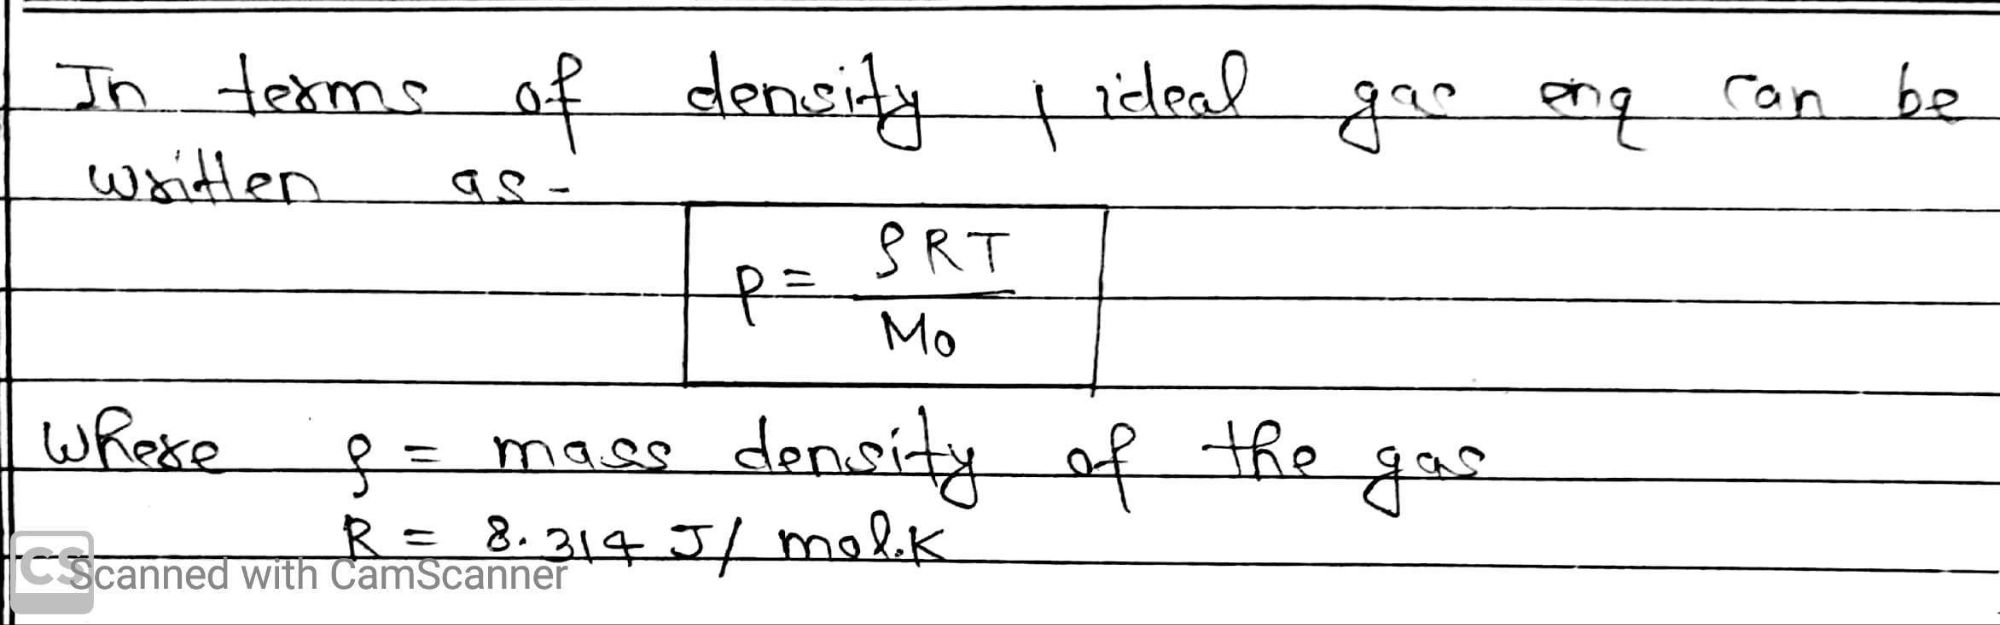 In terms of density, ideal gas enq can be
written as-
P = ρRT
Mo
Where ρ = mass density of the gas
R = 8.314 J/mol.K
CS
Scanned with CamScanner